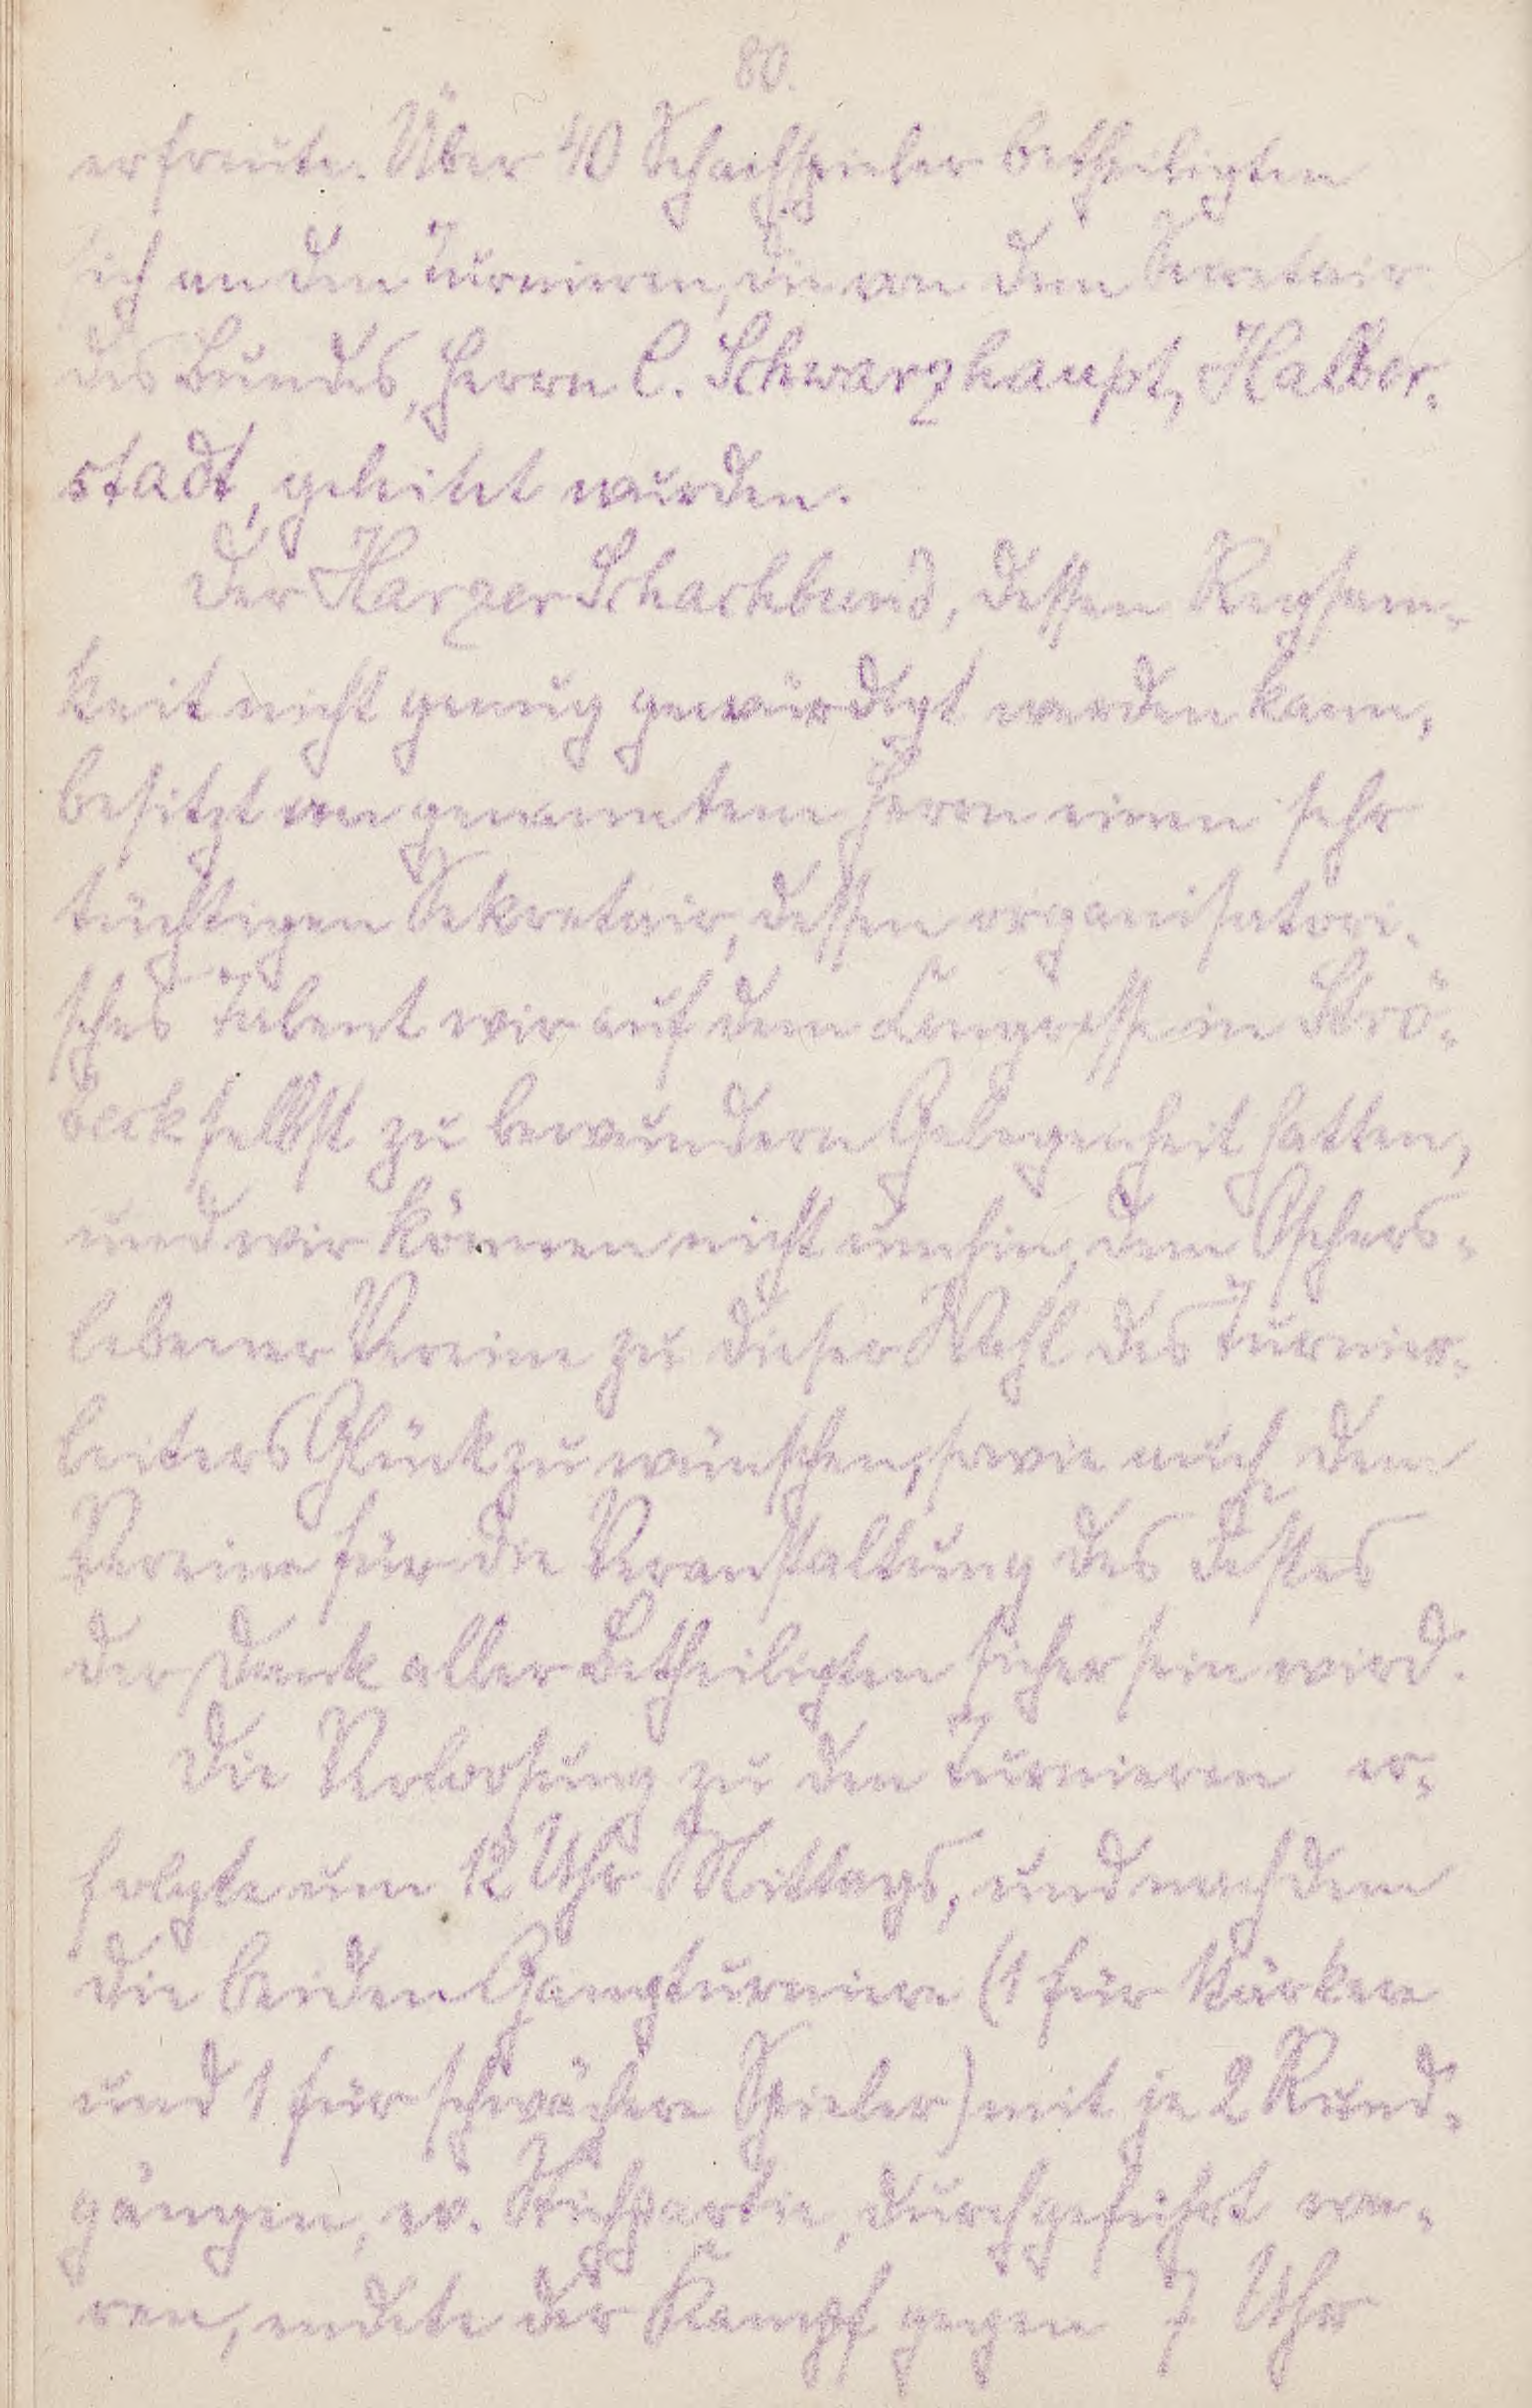 80.
erfreute. Über 40 Schachspieler betheiligten
sich an den Turnieren, die von dem Secretair
des Bundes, Herrn C. Schwarzhaupt, Halber-
stadt, geleitet wurden.
Der Harzer Schachbund, dessen Regsam-
keit nicht genug gewürdigt werden kann,
besitzt an genanntem Herrn einen sehr
tüchtigen Sekretair, dessen organisatori-
sches Talent wir auf dem Congresse in Strö-
beck selbst zu bewundern Gelegenheit hatten,
und wir können nicht umhin, dem Oschers-
lebener Vereine zu dieser Wahl des Turnier-
leiters Glück zu wünschen, sowie auch dem
Vereine für die Veranstaltung des Festes
der Dank aller Betheiligten sicher sein wird.
Die Verlosung zu den Turnieren er-
folgte um 12 Uhr Mittags, und nachdem
die beiden Gangturniere (1 für stärkere
und 1 für schwächere Spieler) mit je 2 Rund-
gängen, ev. Stichpartie, durchgeführt wa-
ren, endete der Kampf gegen 7 Uhr